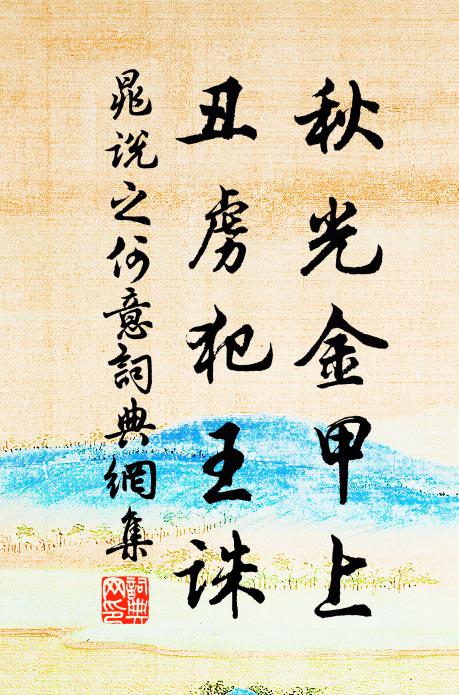 秋光金甲上
丑虜犯王誅
晁說之何意詞典網集
詞典網印